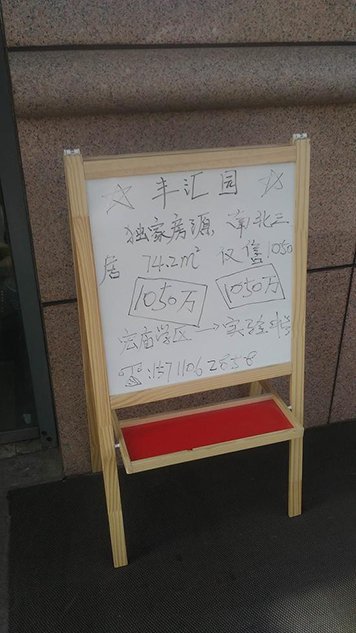 ☆ 丰汇园 ☆
独家房源 南北三
居 74.2m² 仅售1050
1050万 1050万
宏庙学区 → 实验中学
☎:15711062858